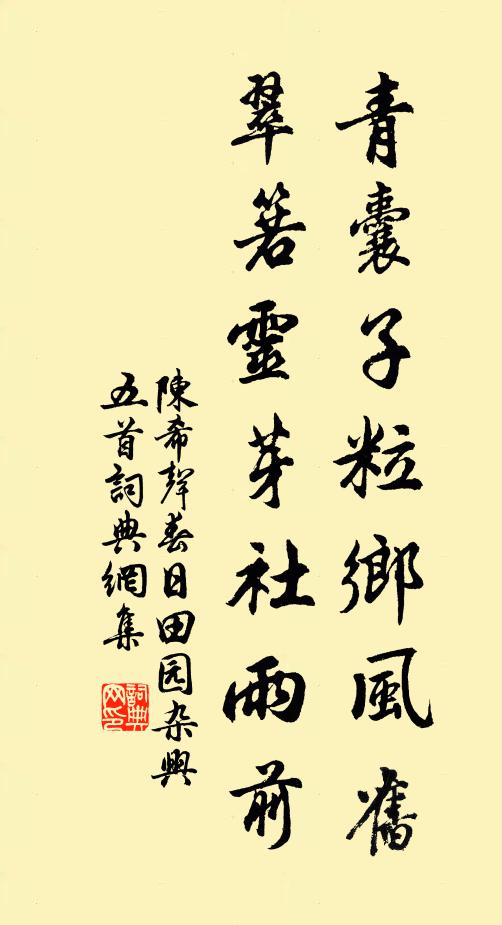 青囊子粒鄉風舊
翠箬靈芽社雨前
陳希聲春日田园杂興
五首詞典網集
詞典网印